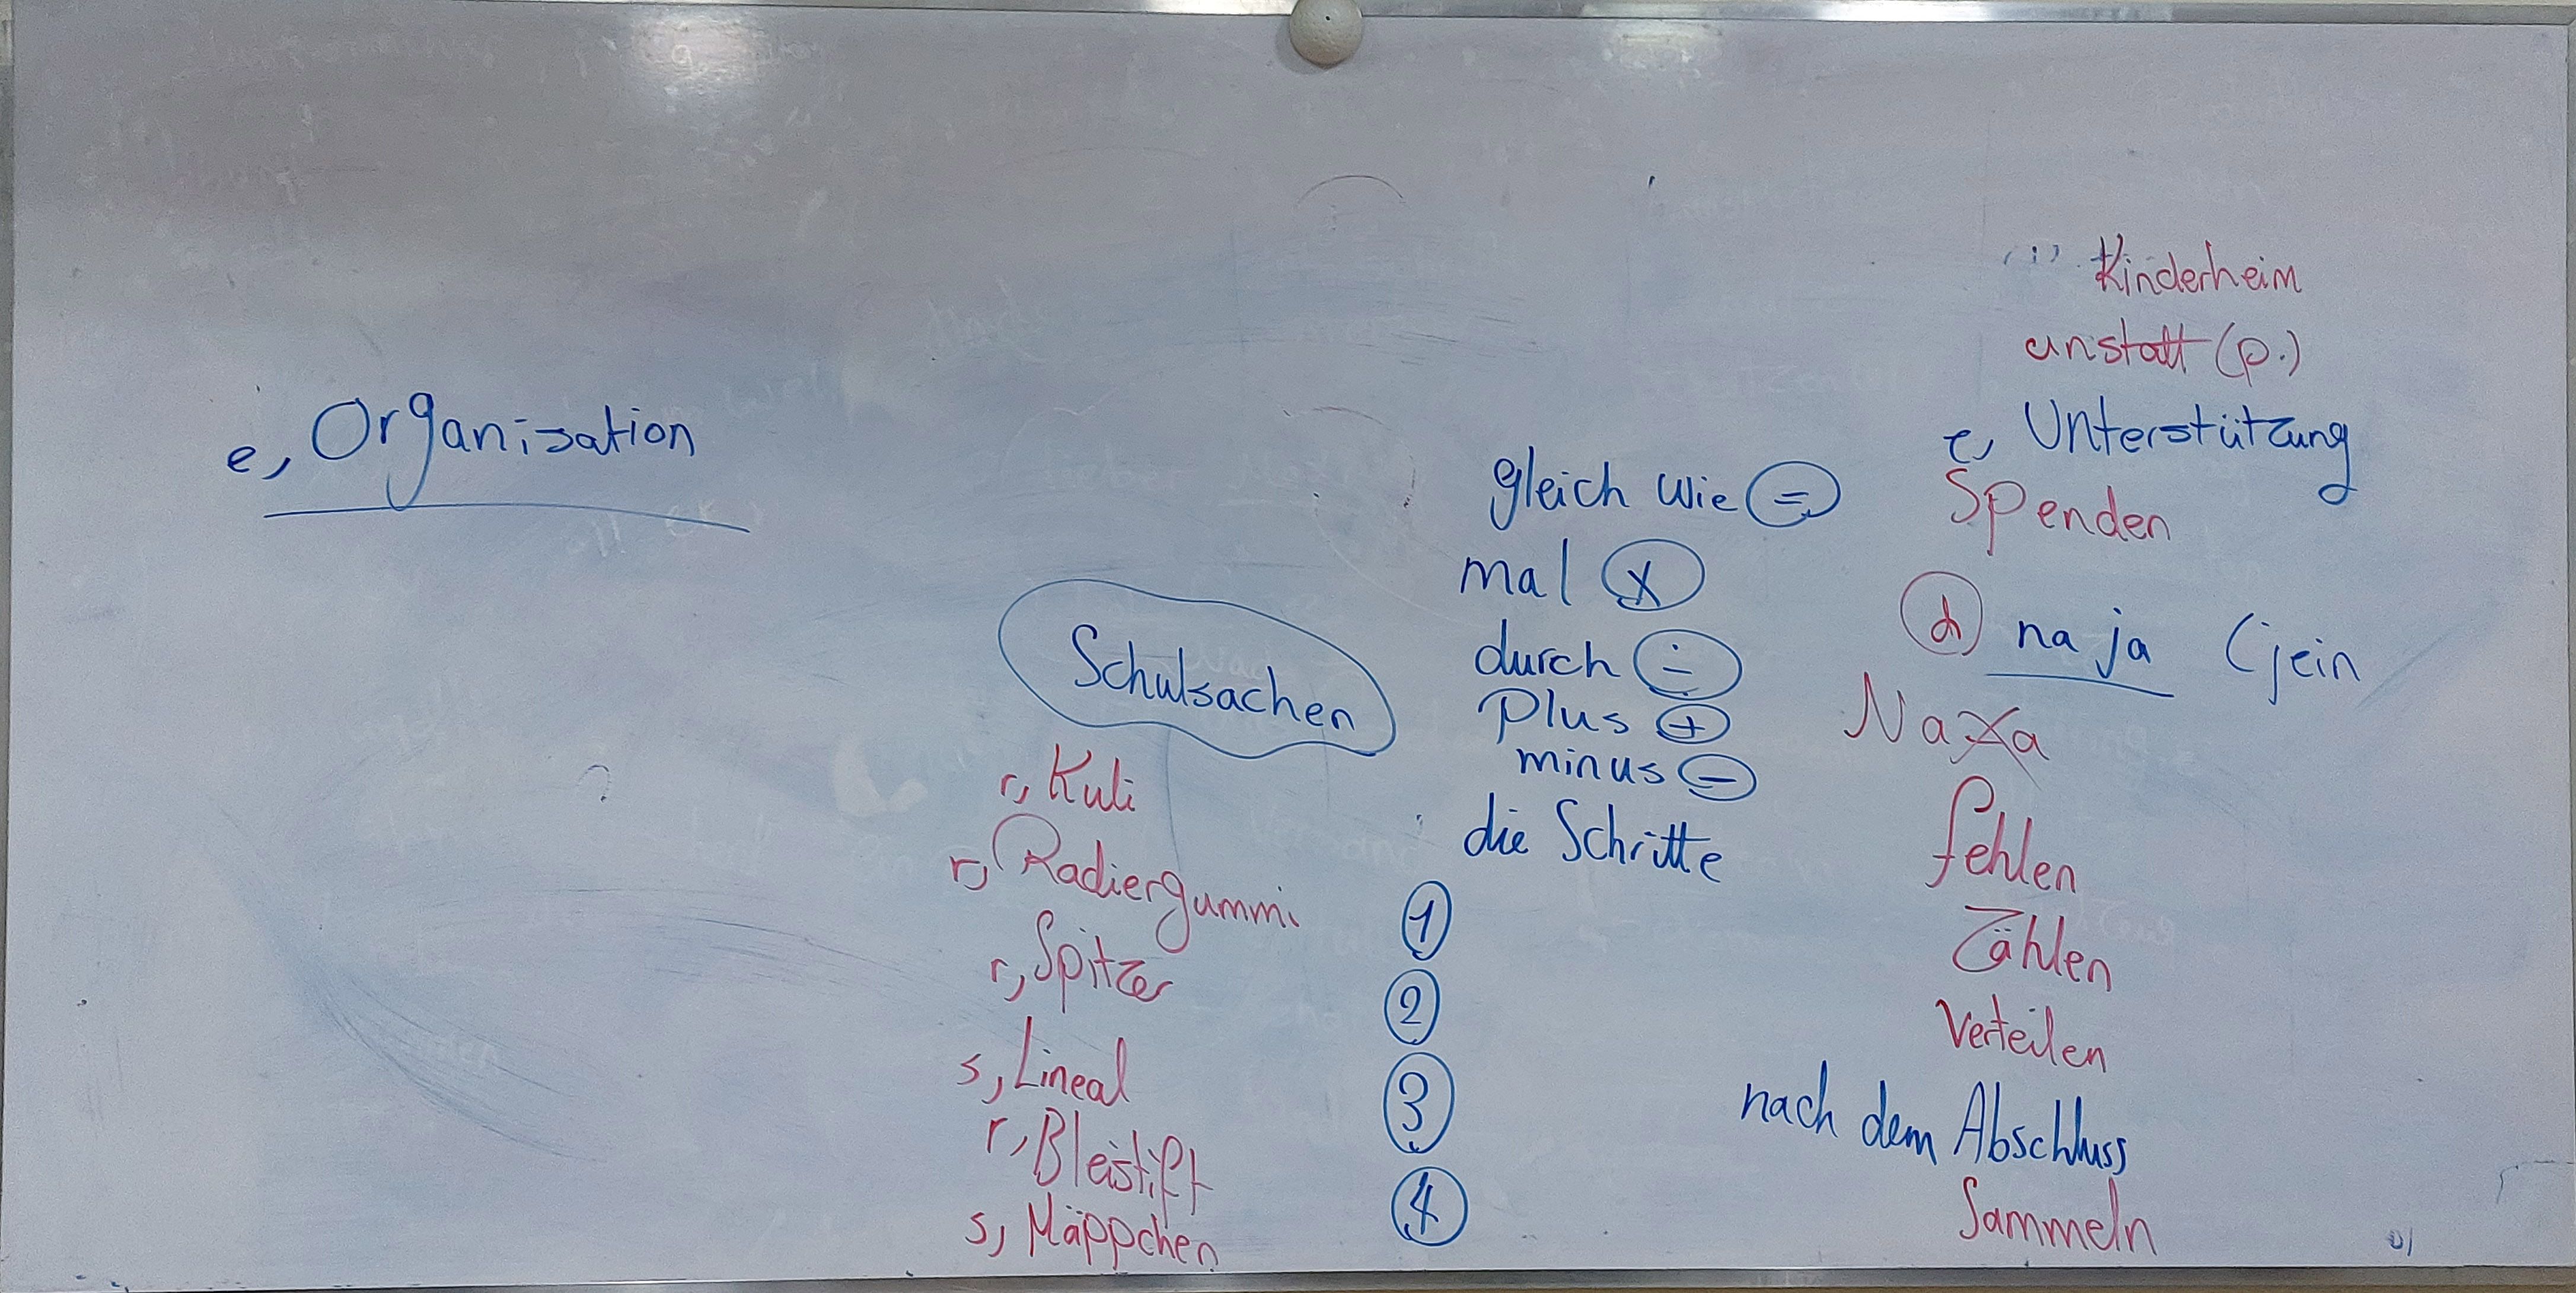 e, Organisation
Schulsachen
r, Kuli
r, Radiergummi
r, Spitzer
s, Lineal
r, Bleistift
s, Mäppchen
gleich wie =
mal x
durch ÷
Plus +
minus -
die Schritte
1
2
3
4
Kinderheim
anstatt (p.)
e, Unterstützung
Spenden
na ja (jein
fehlen
Zählen
Verteilen
nach dem Abschluss
Sammeln